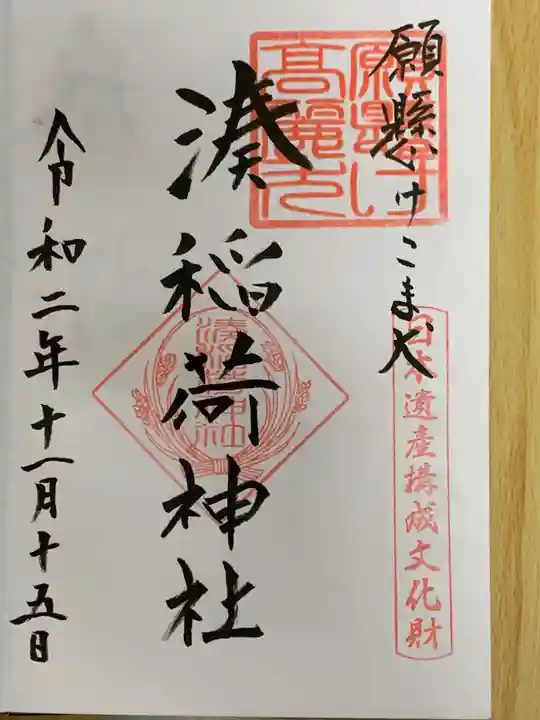 願懸けこま犬
願懸け
高麗犬
日本遺産構成文化財
湊稲荷神社
湊稲荷神社
令和二年十一月十五日